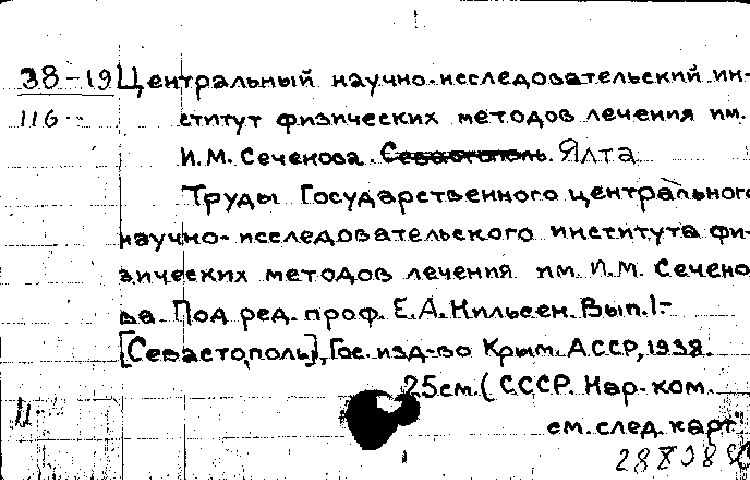 38-19 Центральный научно-исследовательский ин-
116 ститут физических методов лечения им.
И.М. Сеченова. Севастополь. Ялта
Труды Государственного центрального
научно-исследовательского института фи-
зических методов лечения им. И.М. Сечено
ва. Под ред. проф. Е.А. Нильсен. Вып. 1-
[Севастополь], Гос. изд-во Крым. АССР, 1938.
25см. (СССР. Нар. ком.
см. след. карт.